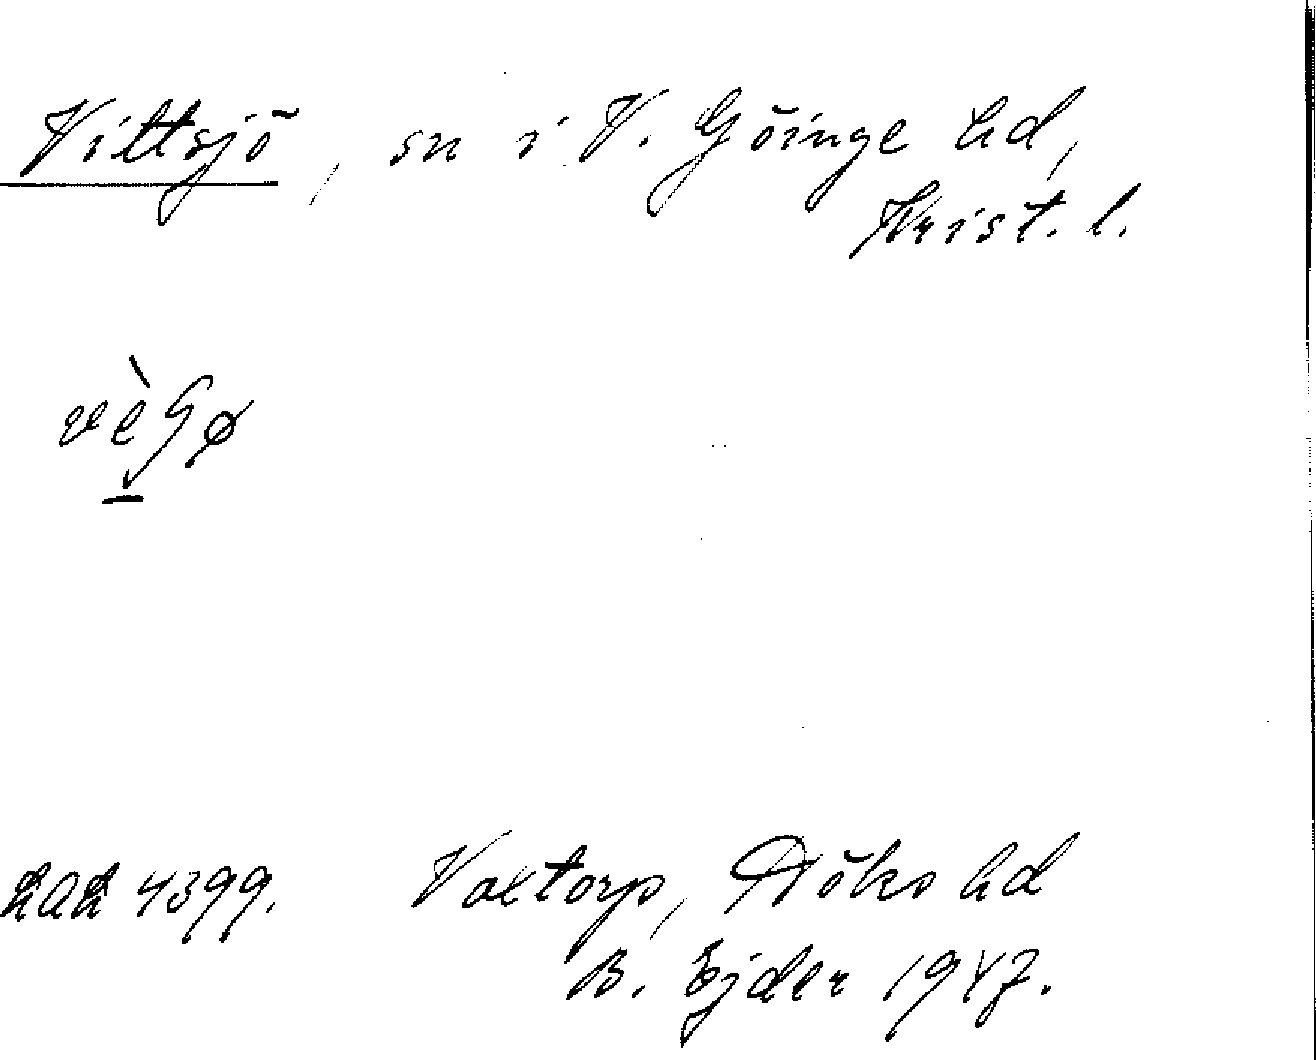 Vittsjö, sn i V. Göinge hd,
Krist. l.
LAL 4399. Voxtorp, Höks hd
B. Ejder 1947.